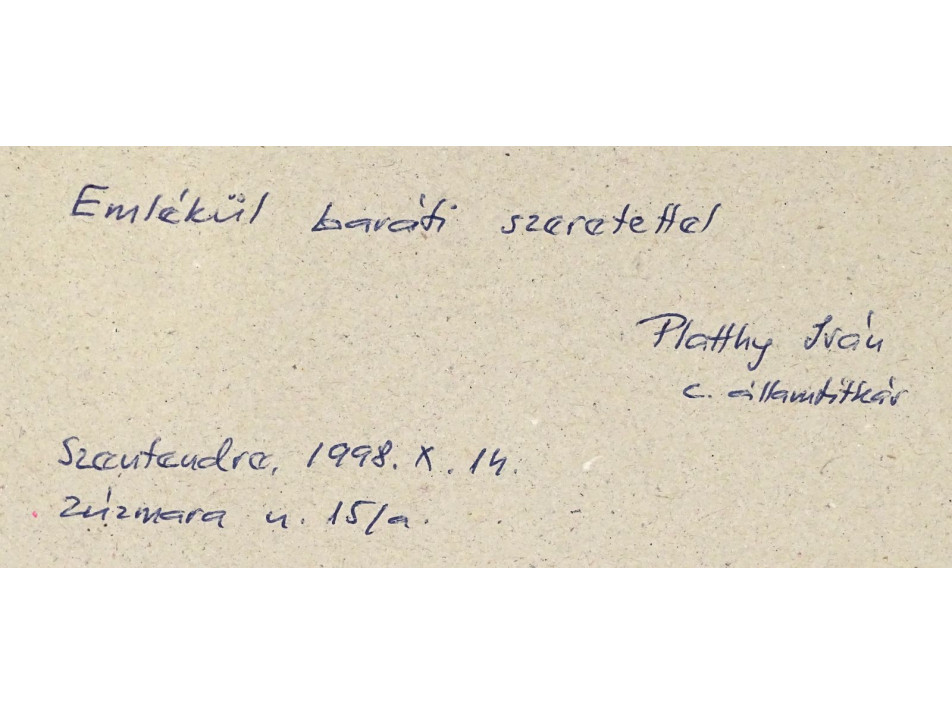 Emlékül baráti szeretettel
Platthy Iván
c. államtitkár
Szentendre, 1998. X. 14.
Zúzmara u. 15/a.